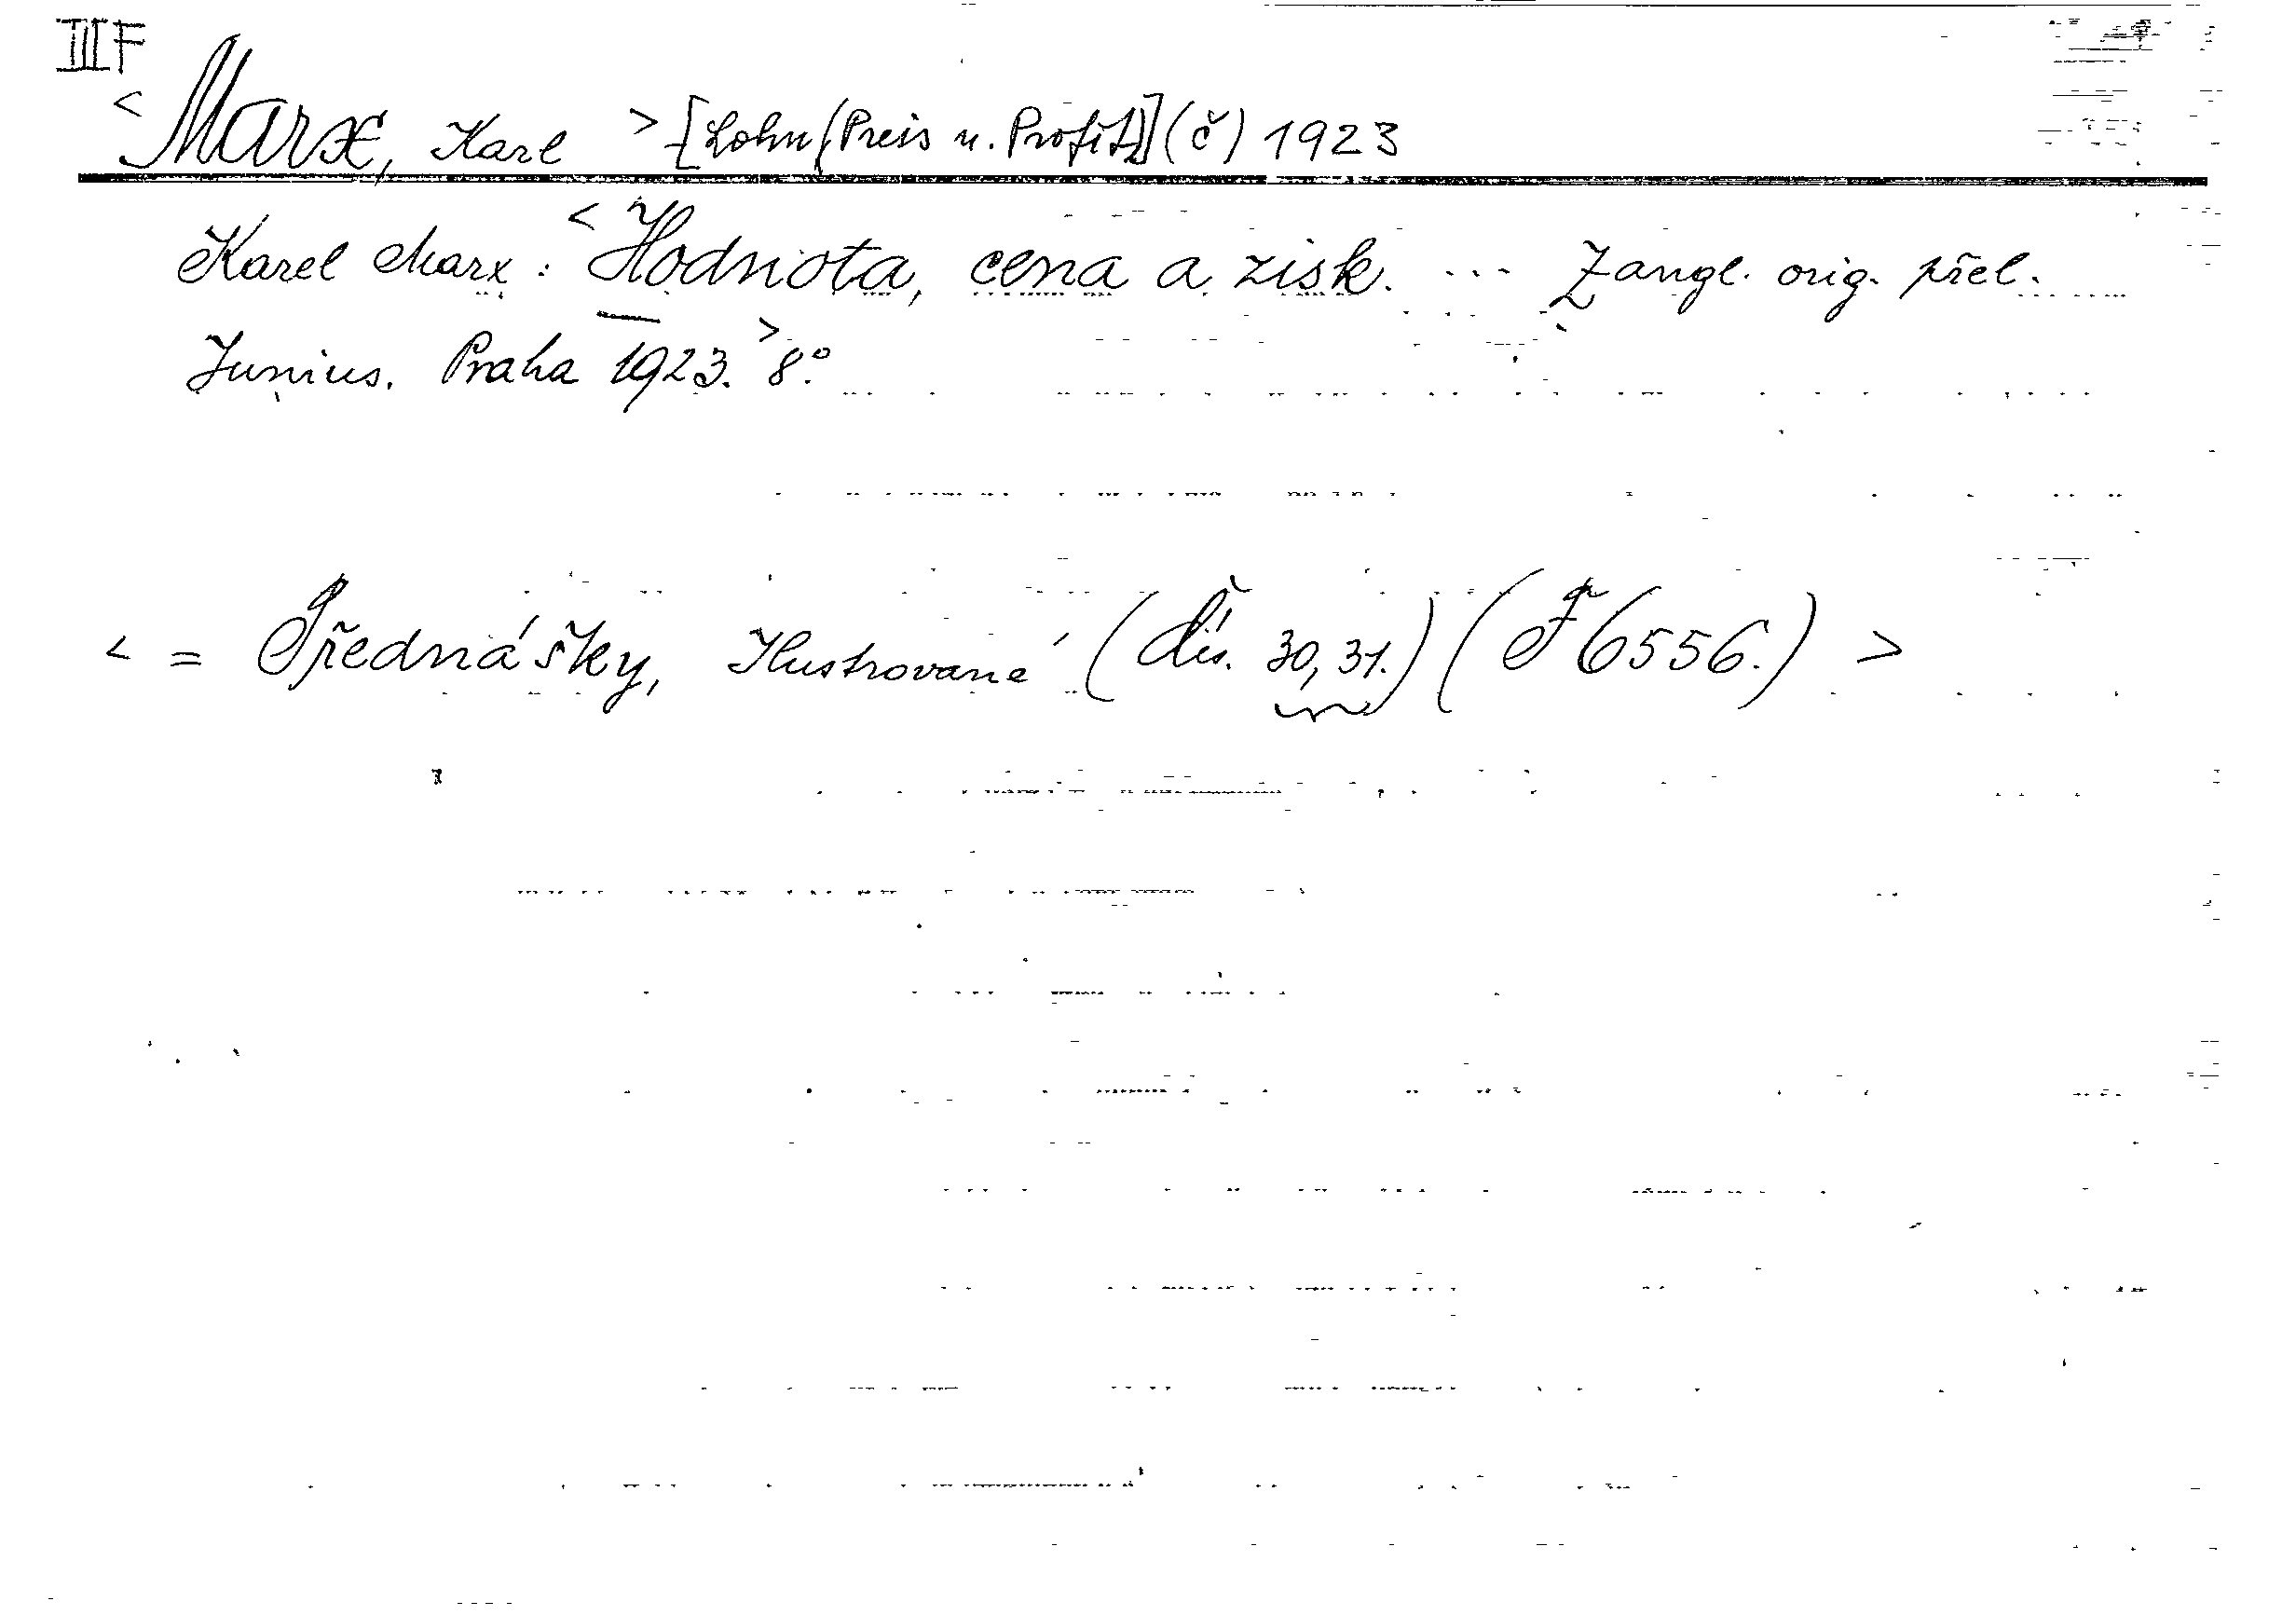 III F
< Marx, Karl > [Lohn, Preis u. Profit] (č) 1923
Karel Marx: < Hodnota, cena a zisk. ... Z angl. orig. přel.
Junius. Praha 1923. > 8º.
< = Přednášky, Ilustrované (Čís. 30, 31.) (F 6556.) >